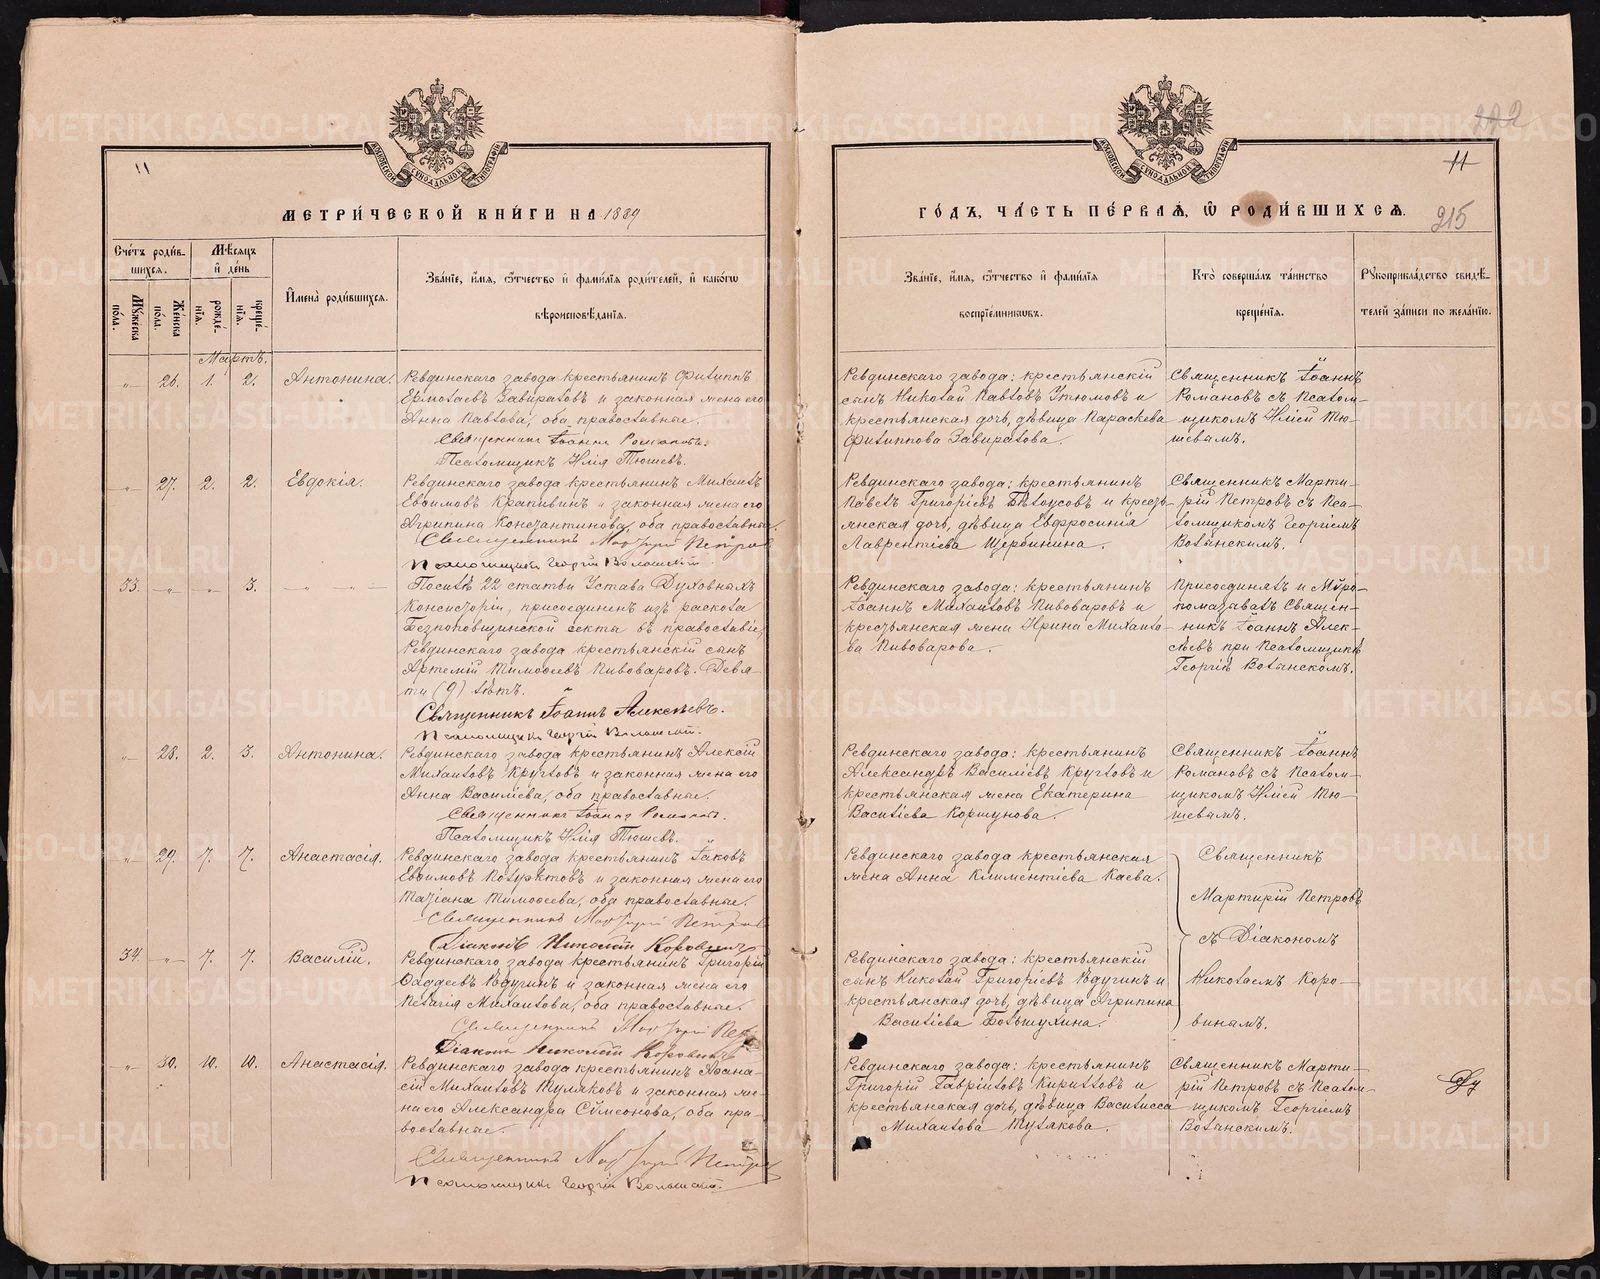 11
МЕТРИ́ЧЕСКОЙ КНИ́ГИ НА 1889
Сче́тъ роди́в-
шихся.
Мѣ́сяцъ
и҆ де́нь
Мꙋ́жеска
по́ла.
Же́нска
по́ла.
рожде́-
нїѧ.
креще́-
нїѧ.
И҆мена̀ роди́вшихся.
Зва́нїе, и҆́мѧ, ѻ҆́тчество и҆ фами́лїѧ роди́телей, и҆ како́гѡ
вѣроисповѣ́данїѧ.
Мартъ.
" 26. 1. 2. Антонина. Ревдинскаго завода крестьянинъ Филиппъ
Ермолаевъ Завираловъ и законная жена его
Анна Павлова, оба православные.
Священникъ Іоаннъ Романовъ.
Псаломщикъ Илія Тюшевъ.
" 27. 2. 2. Евдокія. Ревдинскаго завода крестьянинъ Михаилъ
Евѳимовъ Крапивинъ и законная жена его
Агрипина Константинова, оба православные.
Священникъ Мартирій Петровъ
Псаломщикъ Георгій Волынскій.
33. " " 3. " " " Послѣ 22 статьи Устава Духовныхъ
Консисторій, присоединенъ изъ раскола
Безпоповщинской секты въ православіе,
Ревдинскаго завода крестьянскій сынъ
Артемій Тимоѳеевъ Пивоваровъ. Девя-
ти (9) лѣтъ.
Священникъ Іоаннъ Алексѣевъ.
Псаломщикъ Георгій Волынскій.
" 28. 2. 3. Антонина. Ревдинскаго завода крестьянинъ Алексій
Михаиловъ Кругловъ и законная жена его
Анна Василіева, оба православные.
Священникъ Іоаннъ Романовъ.
Псаломщикъ Илія Тюшевъ.
" 29. 7. 7. Анастасія. Ревдинскаго завода крестьянинъ Іаковъ
Евѳимовъ Полуектовъ и законная жена его
Татіана Тимоѳеева, оба православные.
Священникъ Мартирій Петровъ
Діаконъ Николай Коровинъ
34. " 7. 7. Василій. Ревдинскаго завода крестьянинъ Григорій
Ѳаддеевъ Родугинъ и законная жена его
Пелагія Михаилова, оба православные.
Священникъ Мартирій Петр
Діаконъ Николай Коровинъ
" 30. 10. 10. Анастасія. Ревдинскаго завода крестьянинъ Аѳана-
сій Михаиловъ Туляковъ и законная же-
на его Александра Сѵмеонова, оба пра-
вославные.
Священникъ Мартирій Петров
Псаломщикъ Георгій Волынскій.
222
11
ГО́ДЪ, ЧА́СТЬ ПЕ́РВАѦ, Ѡ҆ РОДИ́ВШИХСѦ.
215
Зва́нїе, и҆́мѧ, ѻ҆́тчество и҆ фами́лїѧ
воспрїе́мникѡвъ.
Кто̀ соверша́лъ та́инство
креще́нїѧ.
Рꙋкоприкла́дство свидѣ́-
телей за́писи по жела́нїю.
Ревдинскаго завода: крестьянскій
сынъ Николай Павловъ Утюмовъ и
крестьянская дочь, дѣвица Параскева
Филиппова Завиралова.
Священникъ Іоаннъ
Романовъ съ Псалом-
щикомъ Иліей Тю-
шевымъ.
Ревдинскаго завода: крестьянинъ
Павелъ Григоріевъ Бѣлоусовъ и кресть-
янская дочь, дѣвица Евфросинія
Лаврентіева Щербинина.
Священникъ Марти-
рій Петровъ съ Пса-
ломщикомъ Георгіемъ
Волынскимъ.
Ревдинскаго завода: крестьянинъ
Іоаннъ Михаиловъ Пивоваровъ и
крестьянская жена Ирина Михаило-
ва Пивоварова.
Присоединялъ и Мѵро-
помазывалъ Священ-
никъ Іоаннъ Алек-
сѣевъ при Псаломщикѣ
Георгіи Волынскомъ.
Ревдинскаго завода: крестьянинъ
Александръ Василіевъ Кругловъ и
крестьянская жена Екатерина
Василіева Коршунова.
Священникъ Іоаннъ
Романовъ съ Псалом-
щикомъ Иліей Тю-
шевымъ.
Ревдинскаго завода крестьянская
жена Анна Климентіева Каева.
Священникъ
Мартирій Петровъ
съ Діакономъ
Николаемъ Коро-
винымъ.
Ревдинскаго завода: крестьянскій
сынъ Николай Григоріевъ Родугинъ и
крестьянская дочь, дѣвица Агрипина
Василіева Большухина.
Ревдинскаго завода: крестьянинъ
Григорій Гавріиловъ Кирилловъ и
крестьянская дочь, дѣвица Василисса
Михаилова Тулякова.
Священникъ Марти-
рій Петровъ съ Псалом-
щикомъ Георгіемъ
Волынскимъ.
METRIKI.GASO-URAL.RU